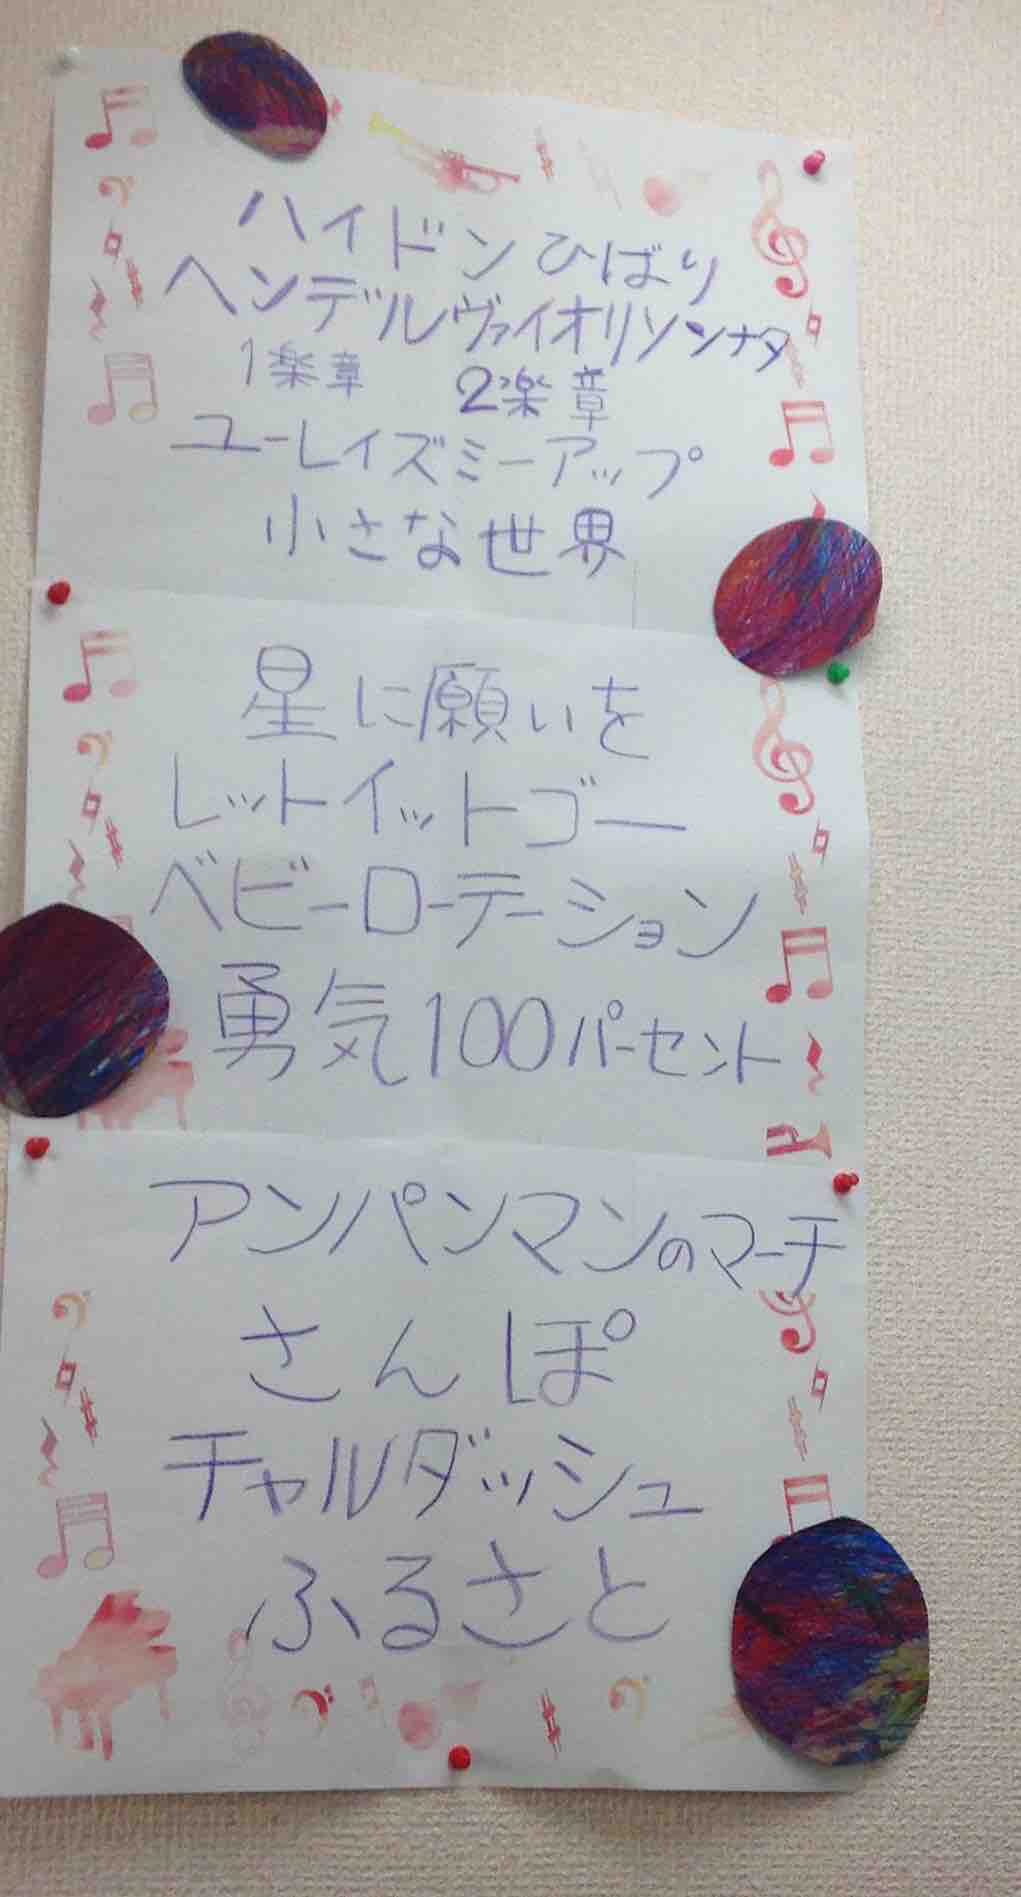 ハイドン ひばり
ヘンデルヴァイオリソンナタ
1楽章 2楽章
ユーレイズミーアップ
小さな世界
星に願いを
レットイットゴー
ベビーローテーション
勇気100パーセント
アンパンマンのマーチ
さんぽ
チャルダッシュ
ふるさと